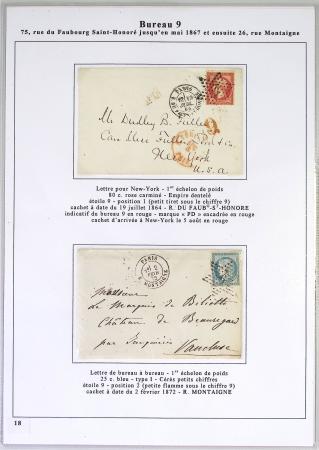 Bureau 9
75, rue du Faubourg Saint-Honoré jusqu'en mai 1867 et ensuite 26, rue Montaigne
PARIS
Mr Dudley B. Fuller
New York
U.S.A
Lettre pour New-York - 1er échelon de poids
80 c. rose carminé - Empire dentelé
étoile 9 - position 1 (petit tiret sous le chiffre 9)
cachet à date du 19 juillet 1864 - R. DU FAUBG-ST-HONORE
indicatif du bureau 9 en rouge - marque « PD » encadrée en rouge
cachet d'arrivée à New-York le 5 août en rouge
PARIS
FEVR
MONTAIGNE
Monsieur
Le Marquis de
Château de Beauregard
par
Vaucluse
Lettre de bureau à bureau - 1er échelon de poids
25 c. bleu - type I - Cérès petits chiffres
étoile 9 - position 2 (petite flamme sous le chiffre 9)
cachet à date du 2 février 1872 - R. MONTAIGNE
18